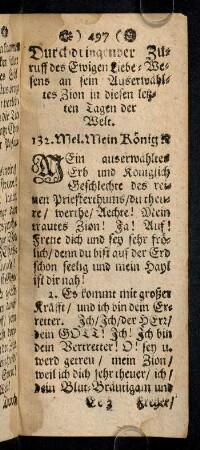 ) 497 (
Durchdringender Zu-
ruff des Ewigen Liebe-We-
sens an sein Auserwähl-
tes Zion in diesen letz-
ten Tagen der
Welt.
132. Mel. Mein König
MEin auserwähltes
Erb und Königlich
Geschlechte des rei-
nen Priesterthums/du theu-
re/ werthe/ Aechte! Mein
trautes Zion! Ja! Auf!
Freue dich und sey sehr frö-
lich/denn du bist auf der Erd
schon seelig und mein Hayl
ist dir nah!
2. Es kommt mit großer
Kräfft/ und ich bin dem Er-
retter. Ich/ Ich/ der HErr/
dein GOTT! Ich! Ich bin
dein Vertretter! O! sey u.
werd getreu/ mein Zion/
weil ich dich sehr theuer/ ich/
dein Blut-Bräutigam und
Ee 3 Freyer/